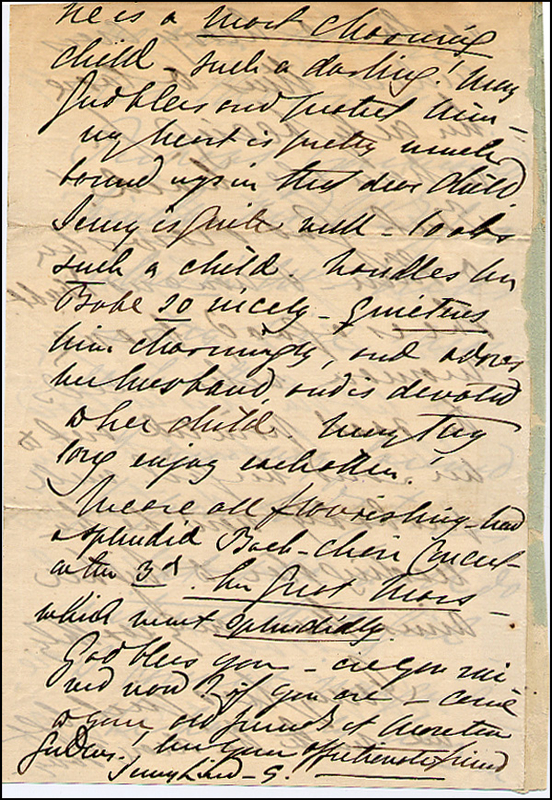 he is a most charming
child - such a darling! May
God bless and protect him -
my heart is pretty much
bound up in that dear child.
Jenny is quite well - looks
such a child. handles her
Babe so nicely - quietens
him charmingly, and adores
her husband, and is devoted
to her child. May they
long enjoy each other!
We are all flourishing - had
a splendid Bach-choir Concert
on the 3d. his great Mass -
which went splendidly.
God bless you - are you
now? if you are - come
to your old friends at Moreton
Gardens. Ever your affectionate friend
Jenny Lind - G.